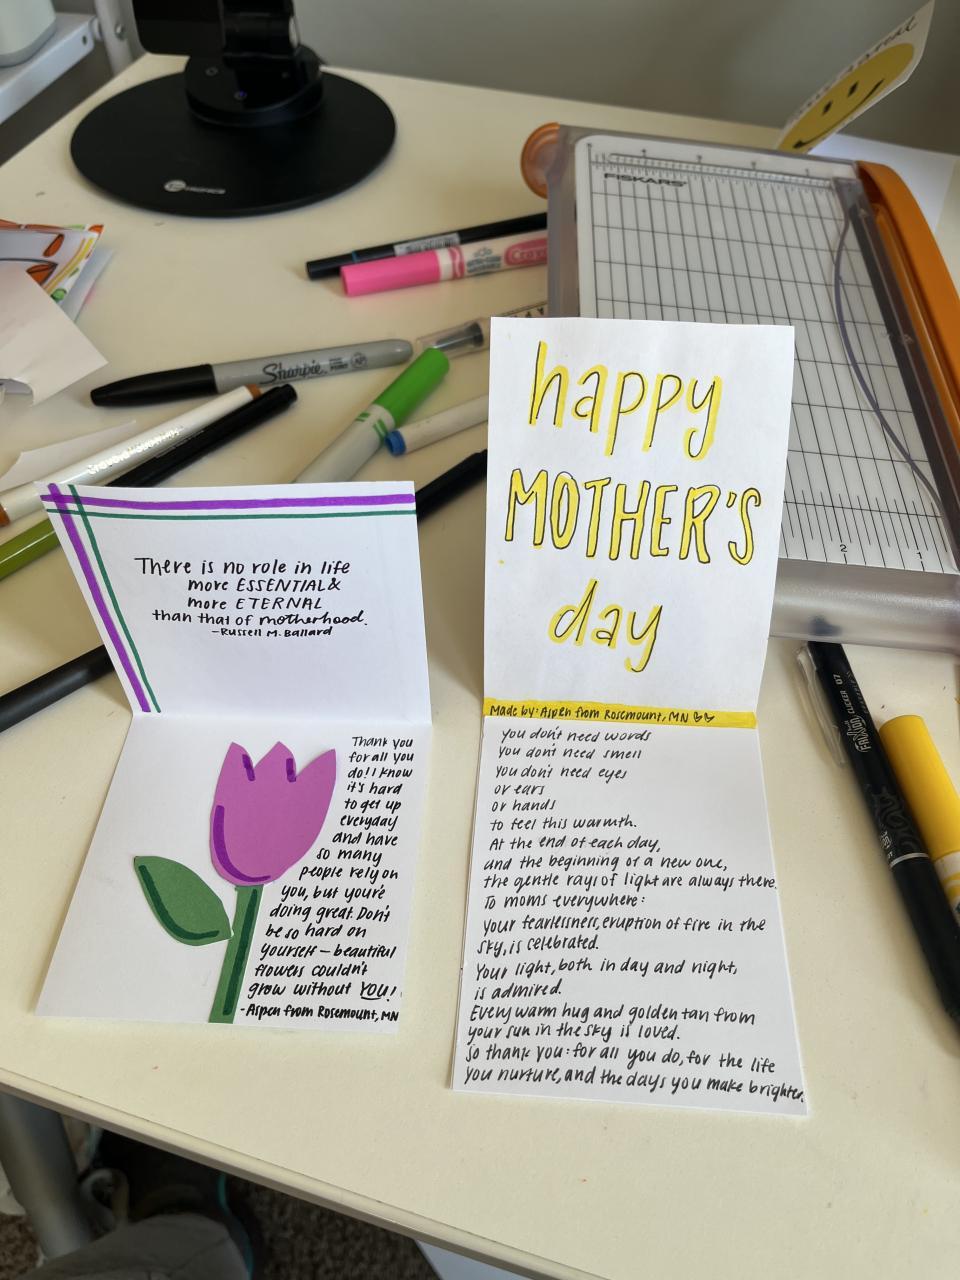 FISKARS
Sharpie
Crayola
happy
MOTHER'S
day
Made by: Aspen from Rosemount, MN
you don't need words
you don't need smell
you don't need eyes
or ears
or hands
to feel this warmth.
At the end of each day,
and the beginning of a new one,
the gentle rays of light are always there.
To moms everywhere:
your fearlessness, eruption of fire in the
sky, is celebrated.
Your light, both in day and night,
is admired.
Every warm hug and golden tan from
your sun in the sky is loved.
So thank you: for all you do, for the life
you nurture, and the days you make brighter.
There is no role in life
more ESSENTIAL &
more ETERNAL
than that of motherhood.
-Russell M. Ballard
Thank you
for all you
do! I know
it's hard
to get up
everyday
and have
so many
people rely on
you, but you're
doing great. Don't
be so hard on
yourself — beautiful
flowers couldn't
grow without YOU!
-Aspen from Rosemount, MN
2 1
FriXion CLICKER 07